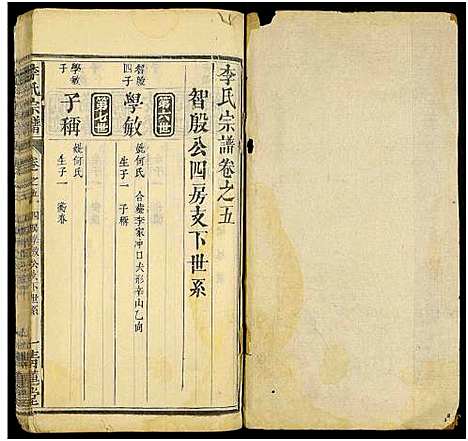 李氏宗譜卷之五
智殷公四房支下世系
第六世
智殷
四子
學敏
妣何氏 合塟李家冲口犬形辛山乙向
生子一 子稱
第七世
學敏
子
子稱
妣何氏
生子一
李氏宗譜
卷之五
四房學敏公支下世系
一
青蓮堂